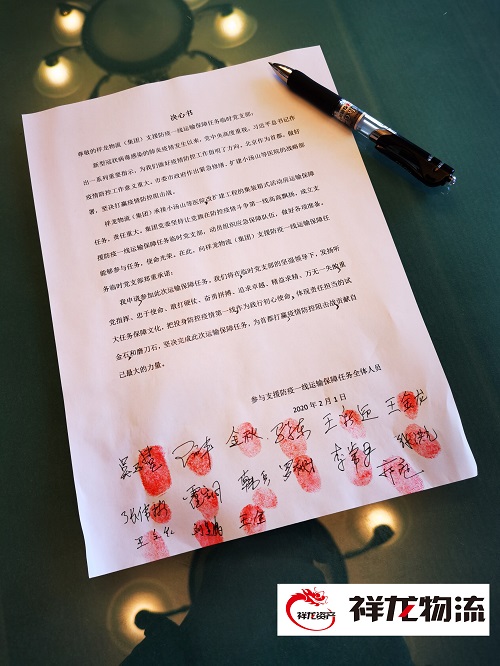 决心书
尊敬的祥龙物流（集团）支援防疫一线运输保障任务临时党支部：
新型冠状病毒感染的肺炎疫情发生以来，党中央高度重视，习近平总书记作
出一系列重要指示，为我们做好疫情防控工作指明了方向。北京作为首都，做好
疫情防控工作意义重大。市委市政府作出紧急加强、扩建小汤山等医院的战略部
署，坚决打赢疫情防控阻击战。
祥龙物流（集团）承接小汤山等医院改扩建工程的集装箱式活动房运输保障
任务，责任重大。集团党委坚持让党旗在防控疫情斗争第一线高高飘扬，成立支
援防疫一线运输保障任务临时党支部，动员组织应急保障队伍，做好各项准备。
能够参与任务，使命光荣。在此，向祥龙物流（集团）支援防疫一线运输保障任
务临时党支部郑重承诺：
我申请参加此次运输保障任务，我们将在临时党支部的坚强领导下，发扬听
党指挥、忠于使命、敢打硬仗、奋勇拼搏、追求卓越、精益求精、万无一失的重
大任务保障文化，把投身防控疫情第一线作为践行初心使命、体现责任担当的试
金石和磨刀石，坚决完成此次运输保障任务，为首都打赢疫情防控阻击战贡献自
己最大的力量。
参与支援防疫一线运输保障任务全体人员
2020 年 2 月 1 日
祥龙资产
祥龙物流